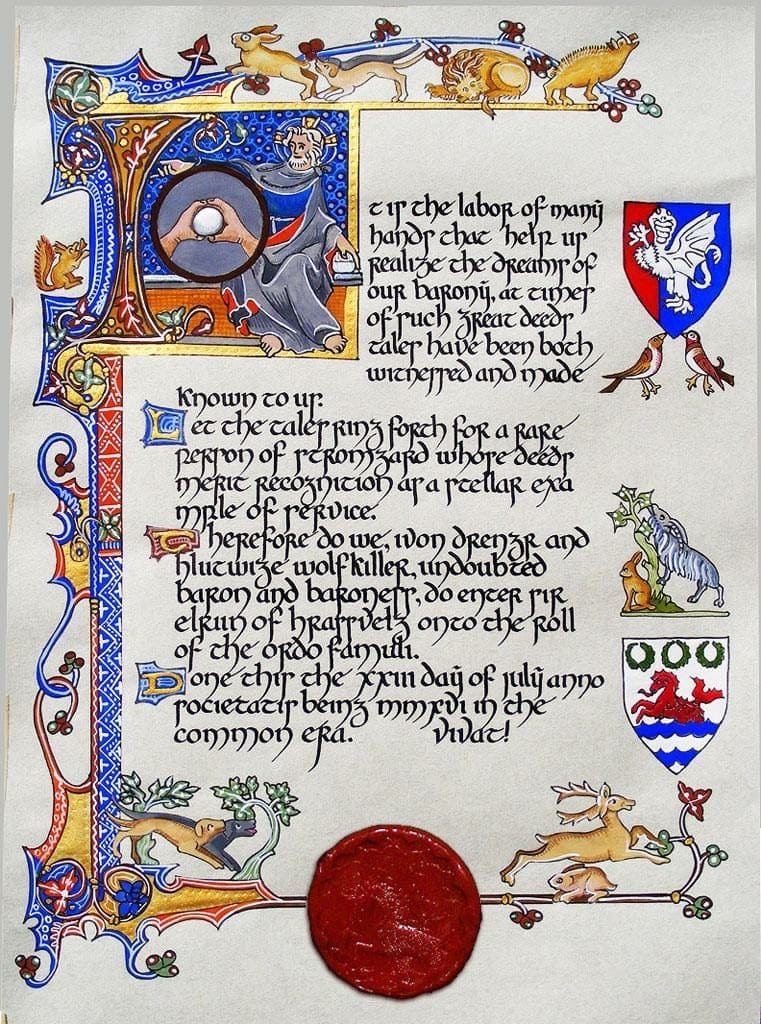 It is the labor of many
hands that help us
realize the dreams of
our barony, at times
of such great deeds
tales have been both
witnessed and made
known to us.
Let the tales ring forth for a rare
person of stromgard whose deeds
merit recognition as a stellar exa
mple of service.
Therefore do we, ivon drengr and
hlutwige wolfkiller, undoubted
baron and baroness, do enter sir
elrun of hrafsvelg onto the roll
of the ordo famuli.
Done this the xxiii day of july anno
societatis being mmxvi in the
common era. vivat!